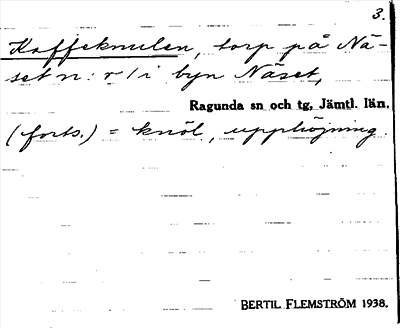 3.
Kaffeknulen, torp på Nä-
set n:r 1 i byn Näset,
Ragunda sn och tg, Jämtl. län.
(forts.) = knöl, upphöjning.
BERTIL FLEMSTRÖM 1938.